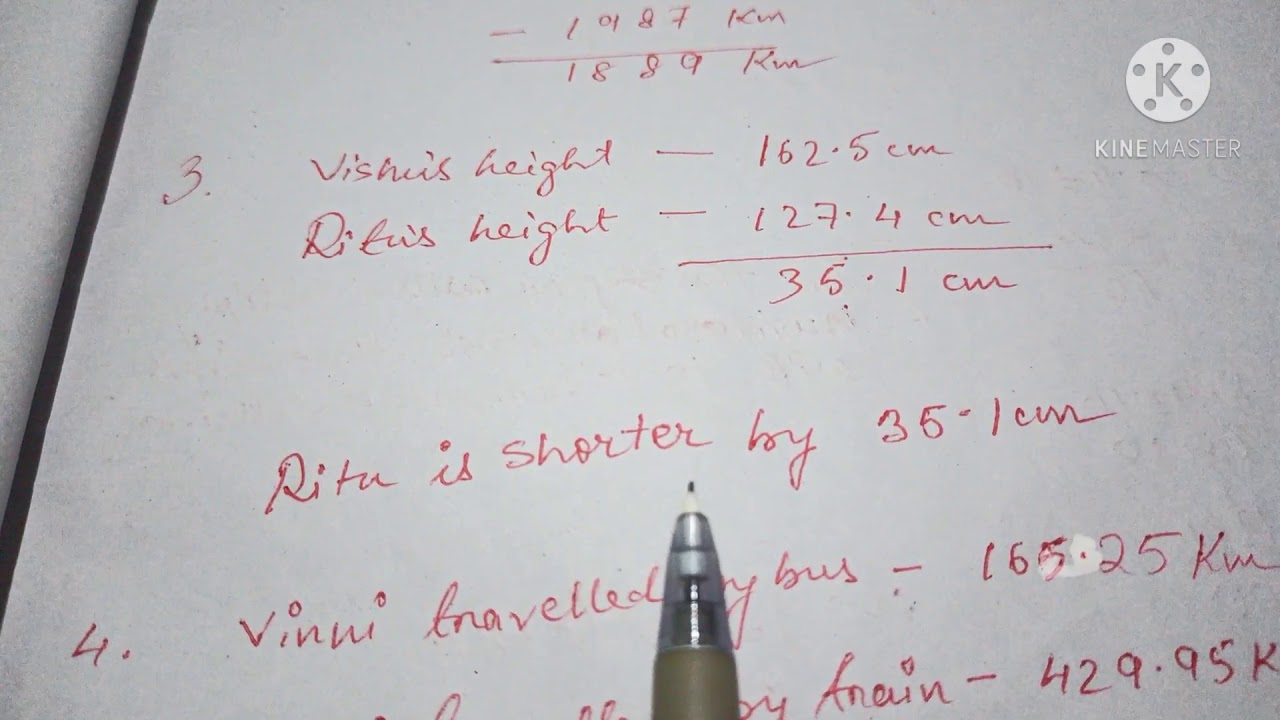 - 1987 Km
1889 Km
K
KINEMASTER
3. Vishu's height - 162.5 cm
Ritu's height - 127.4 cm
35.1 cm
Ritu is shorter by 35.1 cm
4. Vinni travelled by bus - 165.25 Km
by train - 429.95 K